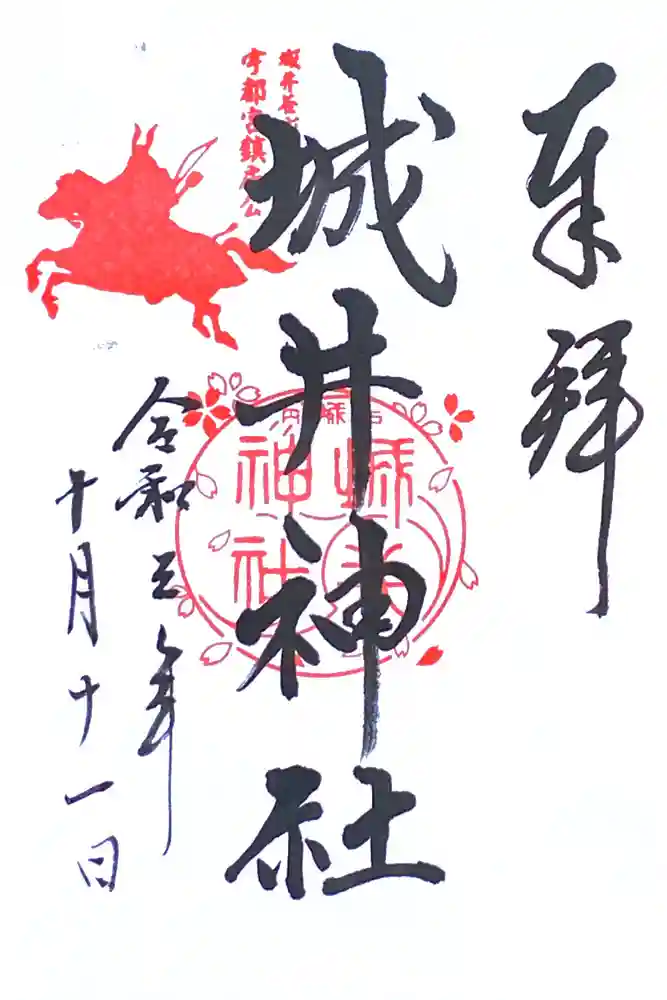 奉拝
城井神社
城井谷
宇都宮鎮房公
城井
神社
令和三年
十月十一日